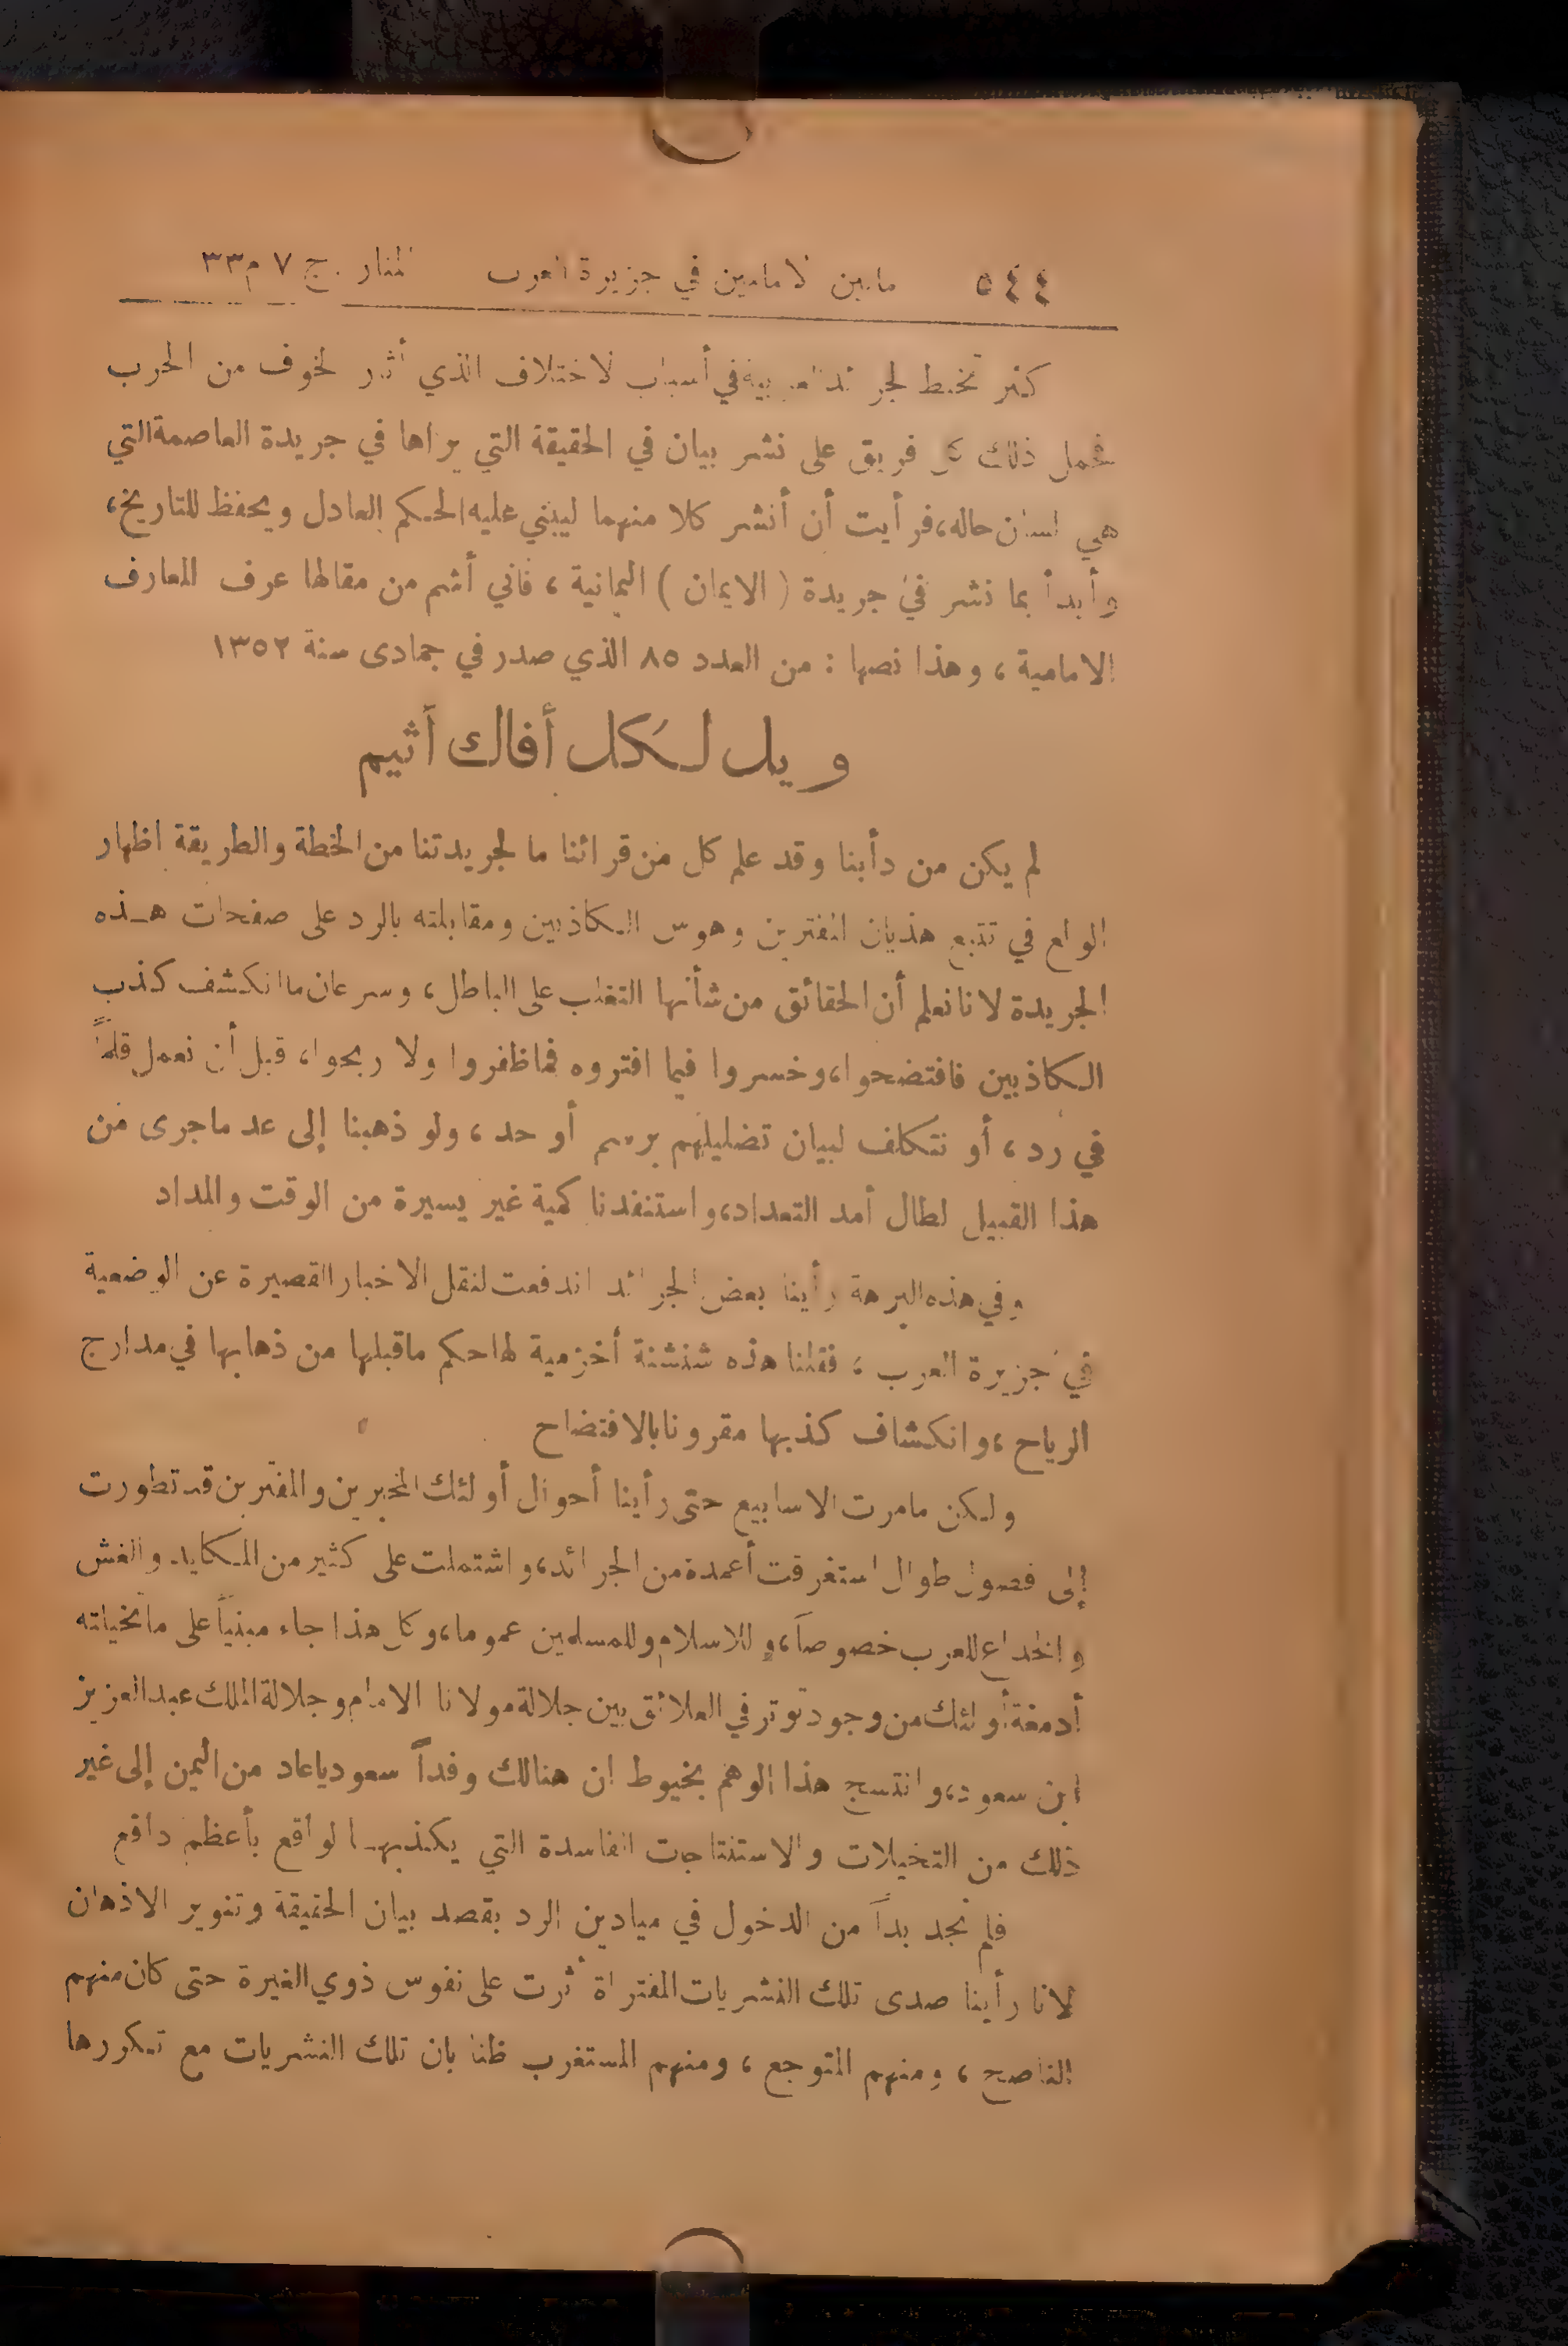 ٥٤٤ ما بين الامامين في جزيرة العرب المنار . ج ٧ م ٣٣
كثر تخبط الجرائد العربية في أسباب الاختلاف الذي أثار الخوف من الحرب
فحمل ذلك كل فريق على نشر بيان في الحقيقة التي يراها في جريدة العاصمة التي
هي لسان حاله، فرأيت أن أنشر كلا منهما ليبني عليه الحكم العادل ويحفظ للتاريخ،
وأبدأ بما نشر في جريدة ( الايمان ) اليمانية ، فاني أشم من مقالها عرف المعارف
الامامية ، وهذا نصها : من العدد ٨٥ الذي صدر في جمادى سنة ١٣٥٢
ويل لكل أفاك أثيم
لم يكن من دأبنا وقد علم كل من قرائنا ما لجريدتنا من الخطة والطريقة اظهار
الولع في تتبع هذيان المفترين وهوس الكاذبين ومقابلته بالرد على صفحات هذه
الجريدة لانا نعلم أن الحقائق من شأنها التغلب على الباطل، وسرعان ما انكشف كذب
الكاذبين فافتضحوا، وخسروا فيما افتروه فما ظفروا ولا ربحوا، قبل أن نعمل قلماً
في رد ، أو نتكلف لبيان تضليلهم برسم أو حد ، ولو ذهبنا إلى عد ما جرى من
هذا القبيل لطال أمد التعداد، واستنفدنا كمية غير يسيرة من الوقت والمداد
وفي هذه البرهة رأينا بعض الجرائد اندفعت لنقل الاخبار القصيرة عن الوضعية
في جزيرة العرب ، فقلنا هذه شنشنة أخزمية لها حكم ماقبلها من ذهابها في مدارج
الرياح ، وانكشاف كذبها مقرونا بالافتضاح
ولكن مامرت الاسابيع حتى رأينا أحوال أولئك المخبرين والمفترين قد تطورت
إلى فصول طوال استغرقت أعمدة من الجرائد، واشتملت على كثير من المكايد والغش
والخداع للعرب خصوصاً، وللاسلام وللمسلمين عموما، وكل هذا جاء مبنياً على ما تخيلته
أدمغة أولئك من وجود توتر في العلائق بين جلالة مولانا الامام وجلالة الملك عبد العزيز
ابن سعود، وانتسج هذا الوهم بخيوط ان هنالك وفداً سعوديا عاد من اليمن إلى غير
ذلك من التخيلات والاستنتاجات الفاسدة التي يكذبها الواقع بأعظم دافع
فلم نجد بداً من الدخول في ميادين الرد بقصد بيان الحقيقة وتنوير الاذهان
لانا رأينا صدى تلك النشريات المفتراة أثرت على نفوس ذوي الغيرة حتى كان منهم
الناصح ، ومنهم المتوجع ، ومنهم المستغرب ظنا بان تلك النشريات مع تكررها